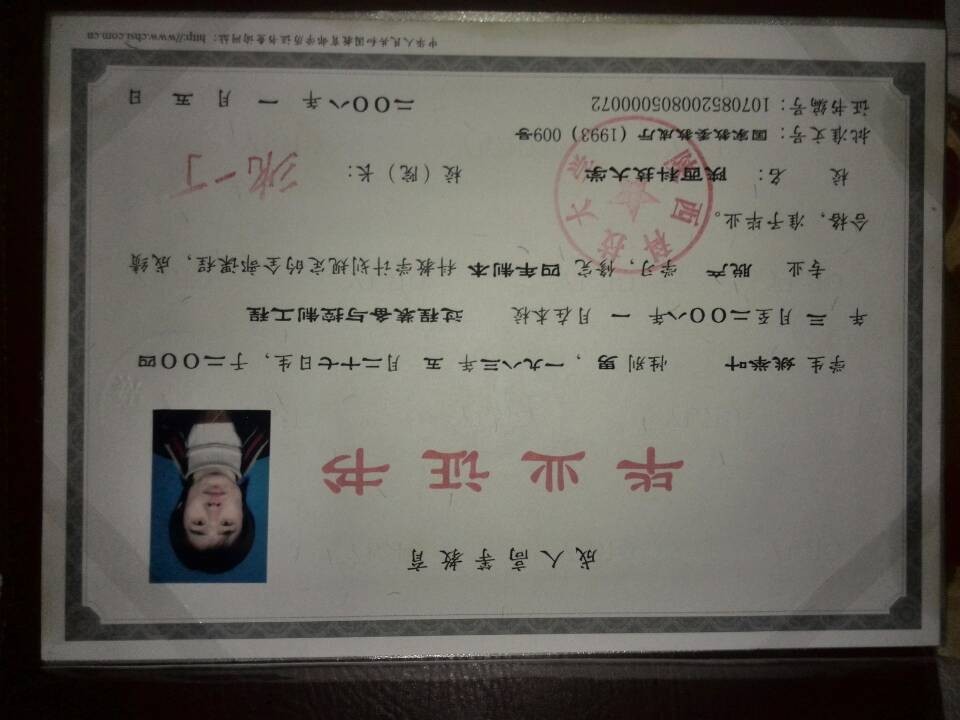 成人高等教育
毕业证书
学生 姚举叶 性别 男 ，一九八三年 五 月二十七日生，于二〇〇四
年 三 月至二〇〇八年 一 月在本校 过程装备与控制工程
专业 脱产 学习，修完 四年制本 科教学计划规定的全部课程，成绩
合格，准予毕业。
校 名： 陕西科技大学 校（院）长：
批准文号：国家教委教成厅（1993）009号
证书编号：107085200805000072 二〇〇八年 一 月 五 日
中华人民共和国教育部学历证书查询网址：http://www.chsi.com.cn
陕西科技大学